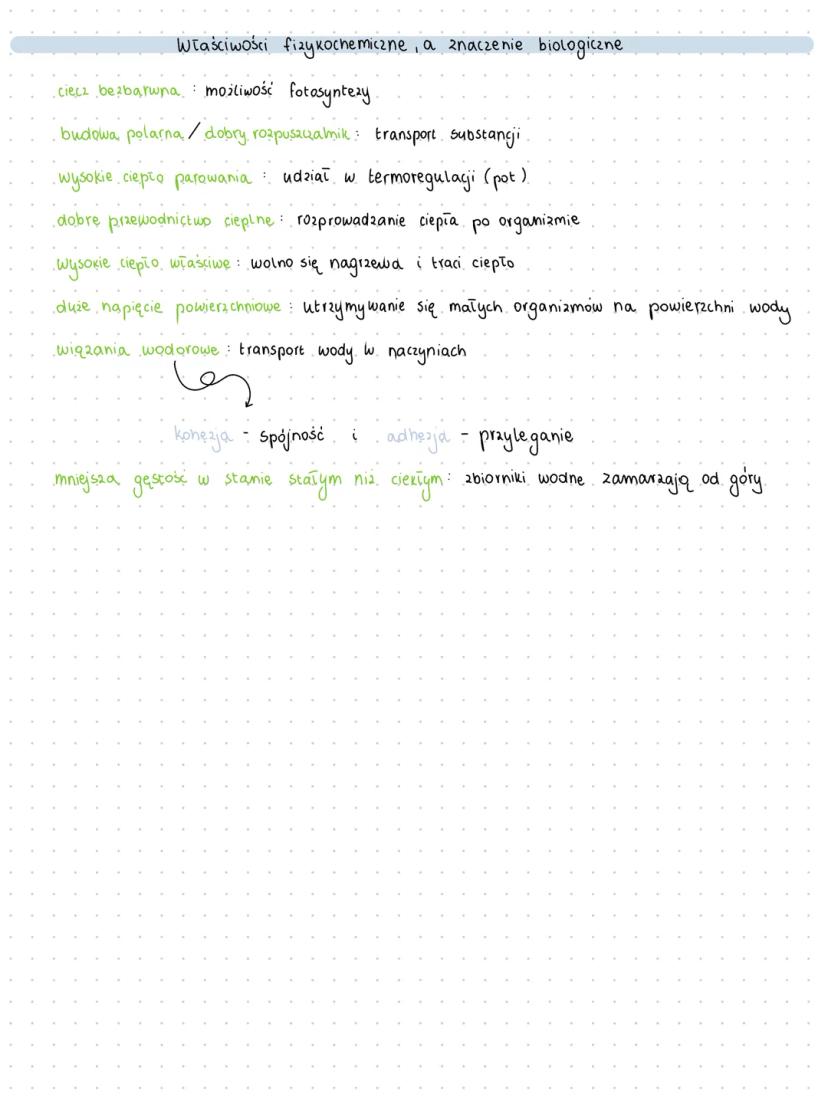 Właściwości fizykochemiczne, a znaczenie biologiczne
ciecz bezbarwna : możliwość fotosyntezy
budowa polarna / dobry rozpuszczalnik : transport substancji
wysokie ciepło parowania : udział w termoregulacji (pot)
dobre przewodnictwo cieplne : rozprowadzanie ciepła po organizmie
wysokie ciepło właściwe : wolno się nagrzewa i traci ciepło
duże napięcie powierzchniowe : utrzymywanie się małych organizmów na powierzchni wody
wiązania wodorowe : transport wody w naczyniach
kohezja - spójność i adhezja - przyleganie
mniejsza gęstość w stanie stałym niż ciekłym : zbiorniki wodne zamarzają od góry